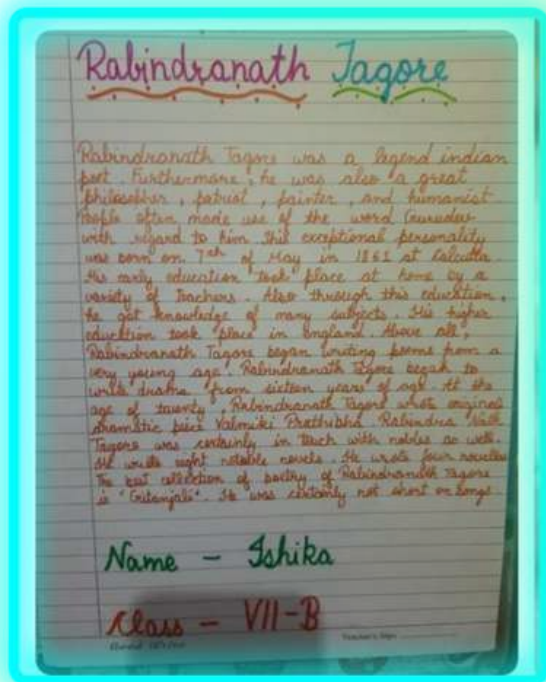 Rabindranath Tagore
Rabindranath Tagore was a legend indian
poet. Furthermore, he was also a great
philosopher, patriot, painter, and humanist
People often made use of the word Gurudev
with regard to him. This exceptional personality
was born on 7th of May in 1861 at Calcutta.
His early education took place at home by a
variety of teachers. Also through this education,
he got knowledge of many subjects. His higher
education took place in England. Above all,
Rabindranath Tagore began writing poems from a
very young age. Rabindranath Tagore began to
write drama from sixteen years of age. At the
age of twenty, Rabindranath Tagore wrote original
dramatic piece Valmiki Prathibha. Rabindra Nath
Tagore was certainly in touch with nobles as well.
He wrote eight notable novels. He wrote four novellas
The best collection of poetry of Rabindranath Tagore
is "Gitanjali". He was certainly not short on songs.
Name - Ishika
Class - VII-B
Teacher's Sign